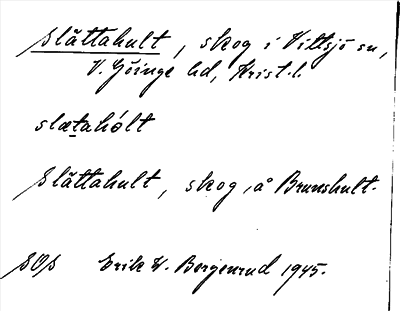 Slättahult, skog i Vittsjö sn,
V. Göinge hd, Krist. l.
slætahólt
Slättahult, skog, å Brunshult.
SOS Erik W. Bergenrud 1945.